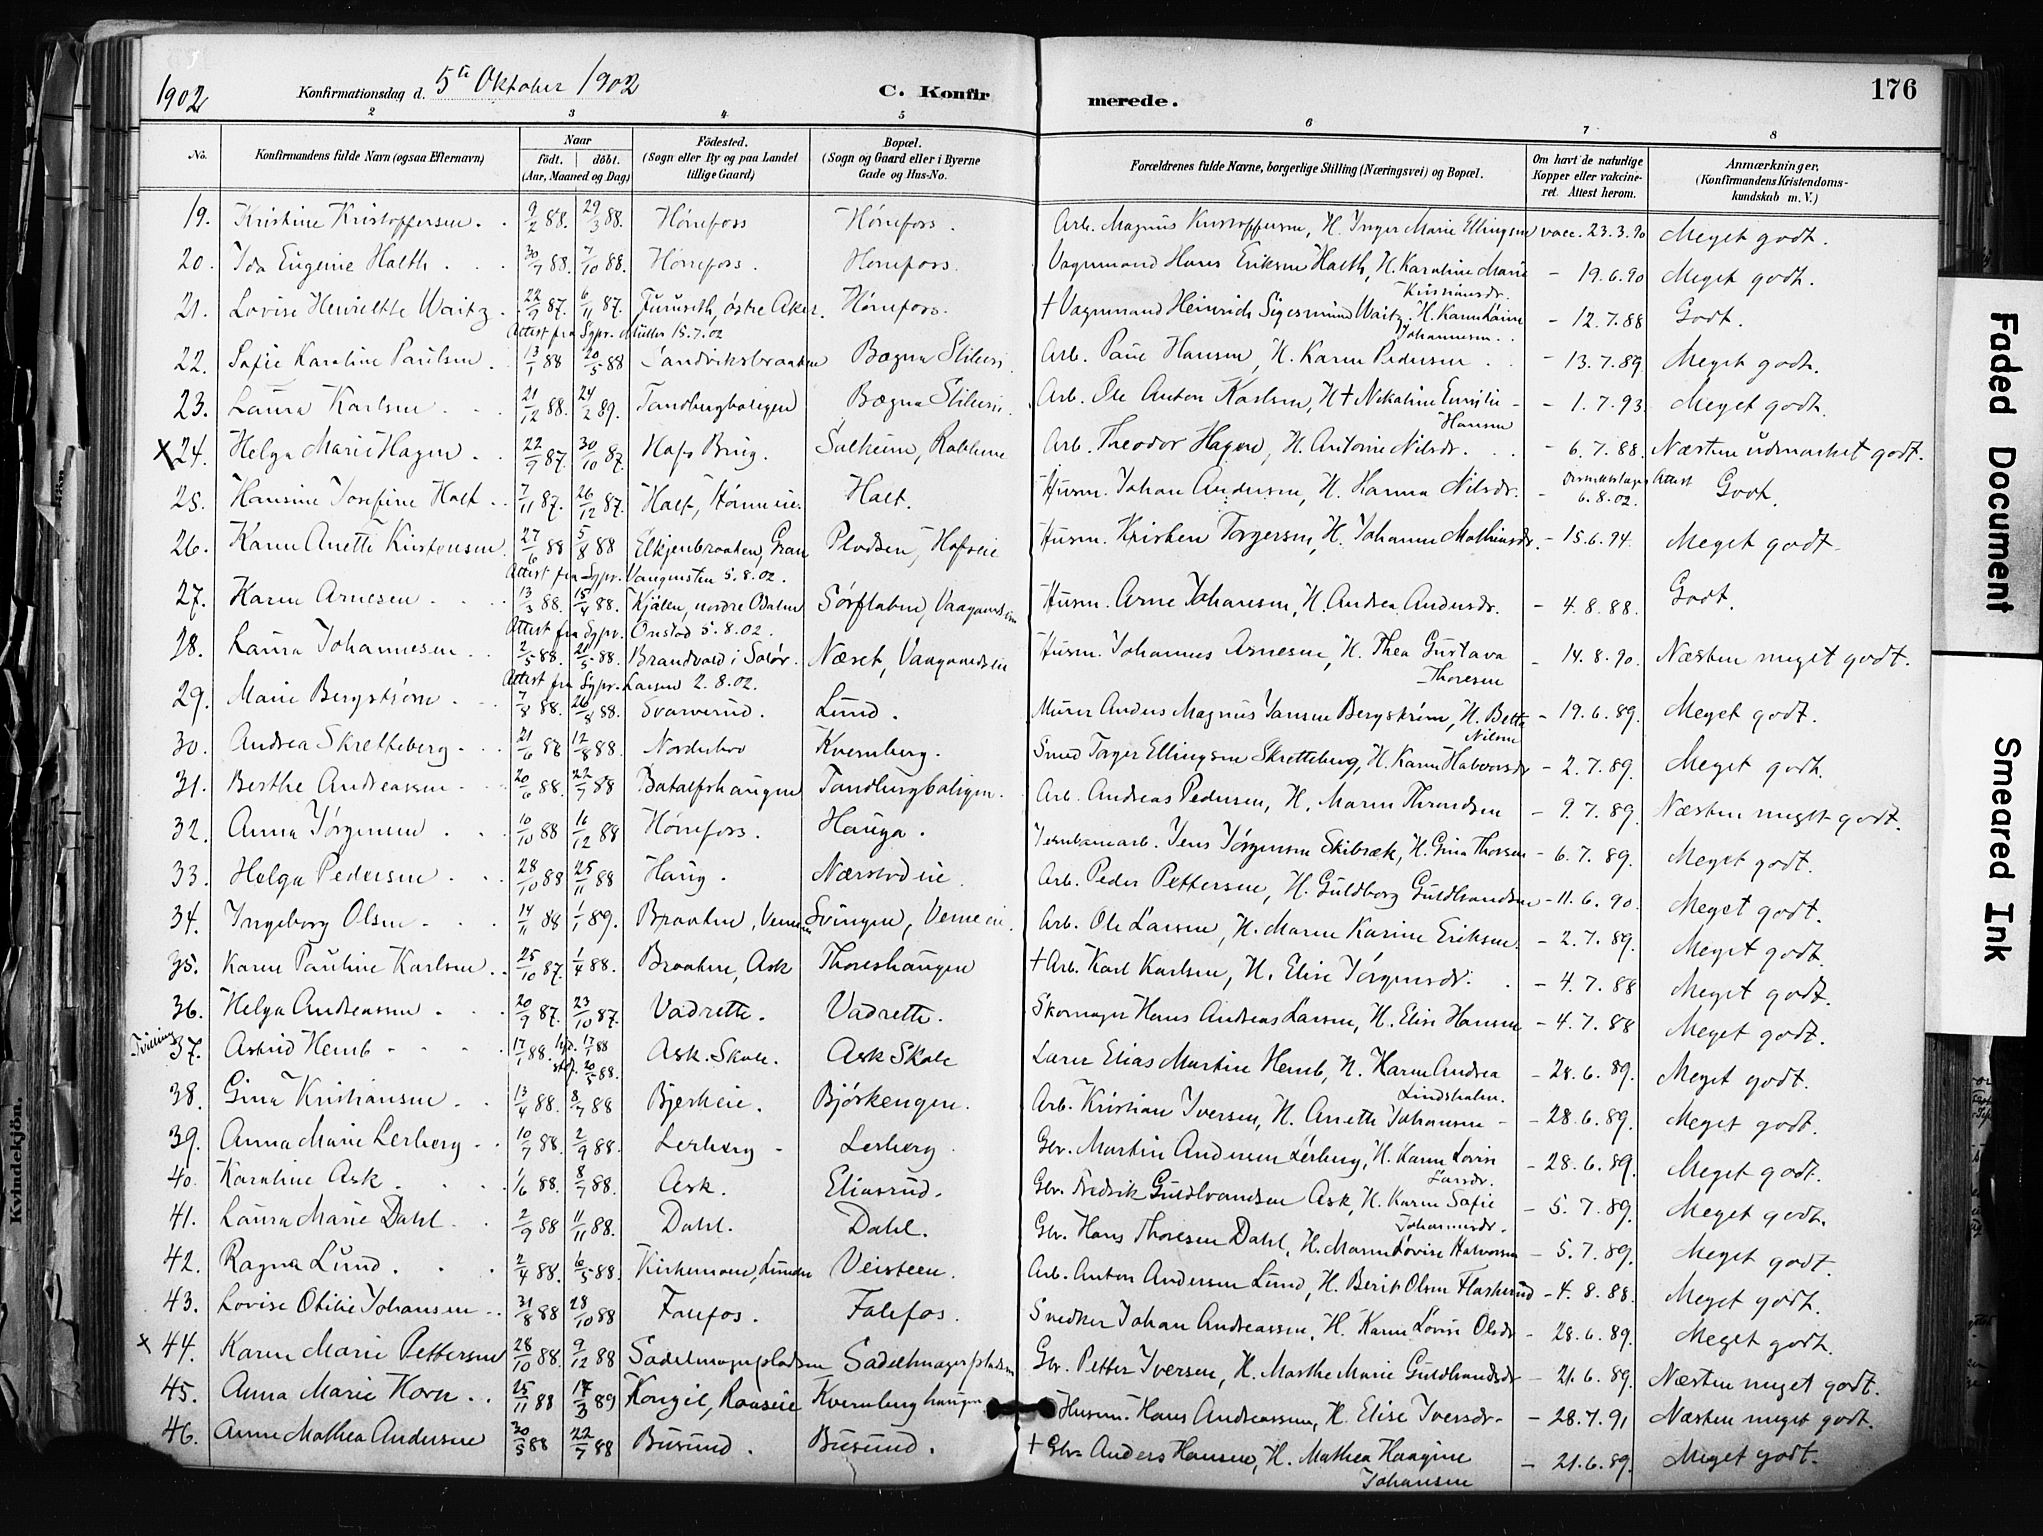 1902
Konfirmationsdag d. 5te Oktober 1902
C. Konfirmerede.
176
2 3 4 5 6 7 8
No. Konfirmandens fulde Navn (ogsaa Efternavn) Naar født. døbt. (Aar, Maaned og Dag) Fødested. (Sogn eller By og paa Landet tillige Gaard) Bopæl. (Sogn og Gaard eller i Byerne Gade og Hus-No. Forældrenes fulde Navne, borgerlige Stilling (Næringsvei) og Bopæl. Om havt de naturlige Kopper eller vakcineret. Attest herom. Anmærkninger, (Konfirmandens Kristendomskundskab m. V.)
19. Kristine Kristoffersen. 9/2 88. 29/3 88. Hønefoss Hønefoss. Arb. Magnus Kristoffersen, H. Inger Marie Ellingsen vacc. 23.3.90 Meget godt.
20. Ida Eugenie Halth 30/7 88. 7/10 88. Hønefoss. Hønefoss. Vognmand Hans Eriksen Halth, H. Karoline Marie Kristiansdr. - 19.6.90 Meget godt.
21. Lovise Henriette Waitz 22/9 87. 6/11 87. Furuseth, østre Aker. Hønefoss. † Vognmand Heinrich Sigesmund Waitz, H. Karen Lovise Johannesen. - 12.7.88 Godt.
Attest fra Sgpr. Müller 15.7.02
22. Sofie Karoline Paulsen. 13/1 88 20/5 88 Sandviksbraaten Bægna Sliberi. Arb. Paul Hansen, H. Karen Pedersen - 13.7.89 Meget godt.
23. Laura Karlsen 21/12 88. 24/2 89. Tandbergboligen Bægna Sliberi. Arb. Ole Anton Karlsen, H † Nikoline Emilie Hansen - 1.7.93. Meget godt.
x24. Helga Marie Hagen. 22/9 87. 30/10 87. Hofs Brug. Solheim, Arb. Theodor Hagen, H. Antonie Nilsdr. - 6.7.88. Næsten udmærket godt.
25. Hansine Josefine Holt 7/11 87. 26/12 87. Holt, Holt. Husm. Johan Andersen, H. Hanna Nilsdr. - Distriktslæges Attest 6.8.02. Godt.
26. Karen Anette Kristensen 27/6 88 5/8 88 Elkjenbraaten, Gran Pladsen, Hofseie Husm. Kristen Torgersen, H. Johanne Mathiasdr. - 15.6.94. Meget godt.
Attest fra Sgpr. Vangensten 5.8.02.
27. Karen Arnesen 13/3 88. 15/4 88. Kjølen, nordre Odalen Sørflaten, Husm. Arne Johansen, H. Andrea Andersdr. - 4.8.88. Godt.
Attest fra Sgpr. Onstad 5.8.02.
28. Laura Johannesen 2/5 88. 21/5 88. Brandvold i Solør. Næset, Husm. Johannes Arnesen, H. Thea Gustava Thoresen - 14.8.90. Næsten meget godt.
Attest fra Sgpr. Larsen 2.8.02.
29. Marie Bergstrøm 7/8 88. 26/8 88. Svarverud. Lund. Murer Anders Magnus Jansen Bergstrøm, H. Betta Nilsen - 19.6.89. Meget godt.
30. Andrea Skretteberg 21/6 88 12/8 88. Norderhov Kvernberg. Smed Torger Ellingsen Skretteberg, H. Karen Halvorsdr. - 2.7.89. Meget godt.
31. Berthe Andreassen 20/6 88. 22/7 88 Tandbergboligen. Arb. Andreas Pedersen, H. Maren Throndsen - 9.7.89. Næsten meget godt.
32. Anna Jørgensen 10/10 88 16/12 88 Hønefoss. Hauga. Jernbanearb. Jens Jørgensen Skibræk, H. Gina Thorsen - 6.7.89. Meget godt.
33. Helga Pedersen 28/10 88 25/11 88 Haug. Nærstadeie. Arb. Peder Pettersen, H. Guldborg Guldbrandsen - 11.6.90. Meget godt.
34. Ingeborg Olsen 14/11 88 1/1 89. Braaten, Svingen, Arb. Ole Larsen, H. Maren Karine Eriksen. - 2.7.89. Meget godt.
35. Karen Pauline Karlsen 25/10 87. 1/4 88. Braaten, Ask Thoreshaugen † Arb. Karl Karlsen, H. Elise Jørgensdr. - 4.7.88 Meget godt.
36. Helga Andreassen 20/9 87. 23/10 87. Vadrette. Vadrette. Skomager Hans Andreas Larsen, H. Elise Hansen - 4.7.88 Meget godt.
Tvilling 37. Astrid Hemb 17/1 88. 17/1 88 20/5 88. Ask Skole. Ask Skole Lærer Elias Martin Hemb, H. Karen Andrea Lindsholm. - 28.6.89. Meget godt.
38. Gina Kristiansen 13/4 88. 8/7 88 Bjerkeie. Bjørkengen. Arb. Kristian Iversen, H. Anette Johansen - 28.6.89. Meget godt.
39. Anna Marie Lerberg 10/7 88. 2/9 88. Lerberg Lerberg. Gbr. Martin Andersen Lerberg, H. Karen Lovise Larsdr. - 28.6.89. Meget godt.
40. Karoline Ask 1/6 88. 8/7 88. Ask. Eliasrud. Gbr. Fredrik Guldbrandsen Ask, H. Karen Sofie Johannesdr. - 5.7.89. Meget godt.
41. Laura Marie Dahl 2/9 88 11/11 88. Dahl. Dahl. Gbr. Hans Thoresen Dahl, H. Maren Lovise Halvorsen - 5.7.89. Meget godt.
42. Ragna Lund. 2/4 88. 6/5 88. Kirkemoen, Lunder Veisteen. Arb. Anton Andersen Lund, H. Berit Olsen Flaskerud - 4.8.88. Meget godt.
43. Lovise Otilie Johansen 31/8 88 28/10 88 Folefos. Folefos. Snedker Johan Andreassen, H. Karen Lovise Olsdr. - 28.6.89. Meget godt.
x 44. Karen Marie Pettersen 28/10 88. 9/12 88 Sadelmagerpladsen Sadelmagerpladsen Gbr. Petter Iversen, H. Marthe Marie Guldbrandsdr. - 21.6.89. Næsten meget godt.
45. Anna Marie Horn 25/11 88 17/3 89 Kongil, Kvernberghaugen Husm. Hans Andreassen, H. Elise Iversdr. - 28.7.91 Næsten meget godt.
46. Anne Mathea Andersen 30/5 88 22/7 88 Busund. Busund. † Gbr. Anders Hansen, H. Mathea Haagine Johansen - 21.6.89. Meget godt.
Kvindekjön.
Faded Document
Smeared Ink